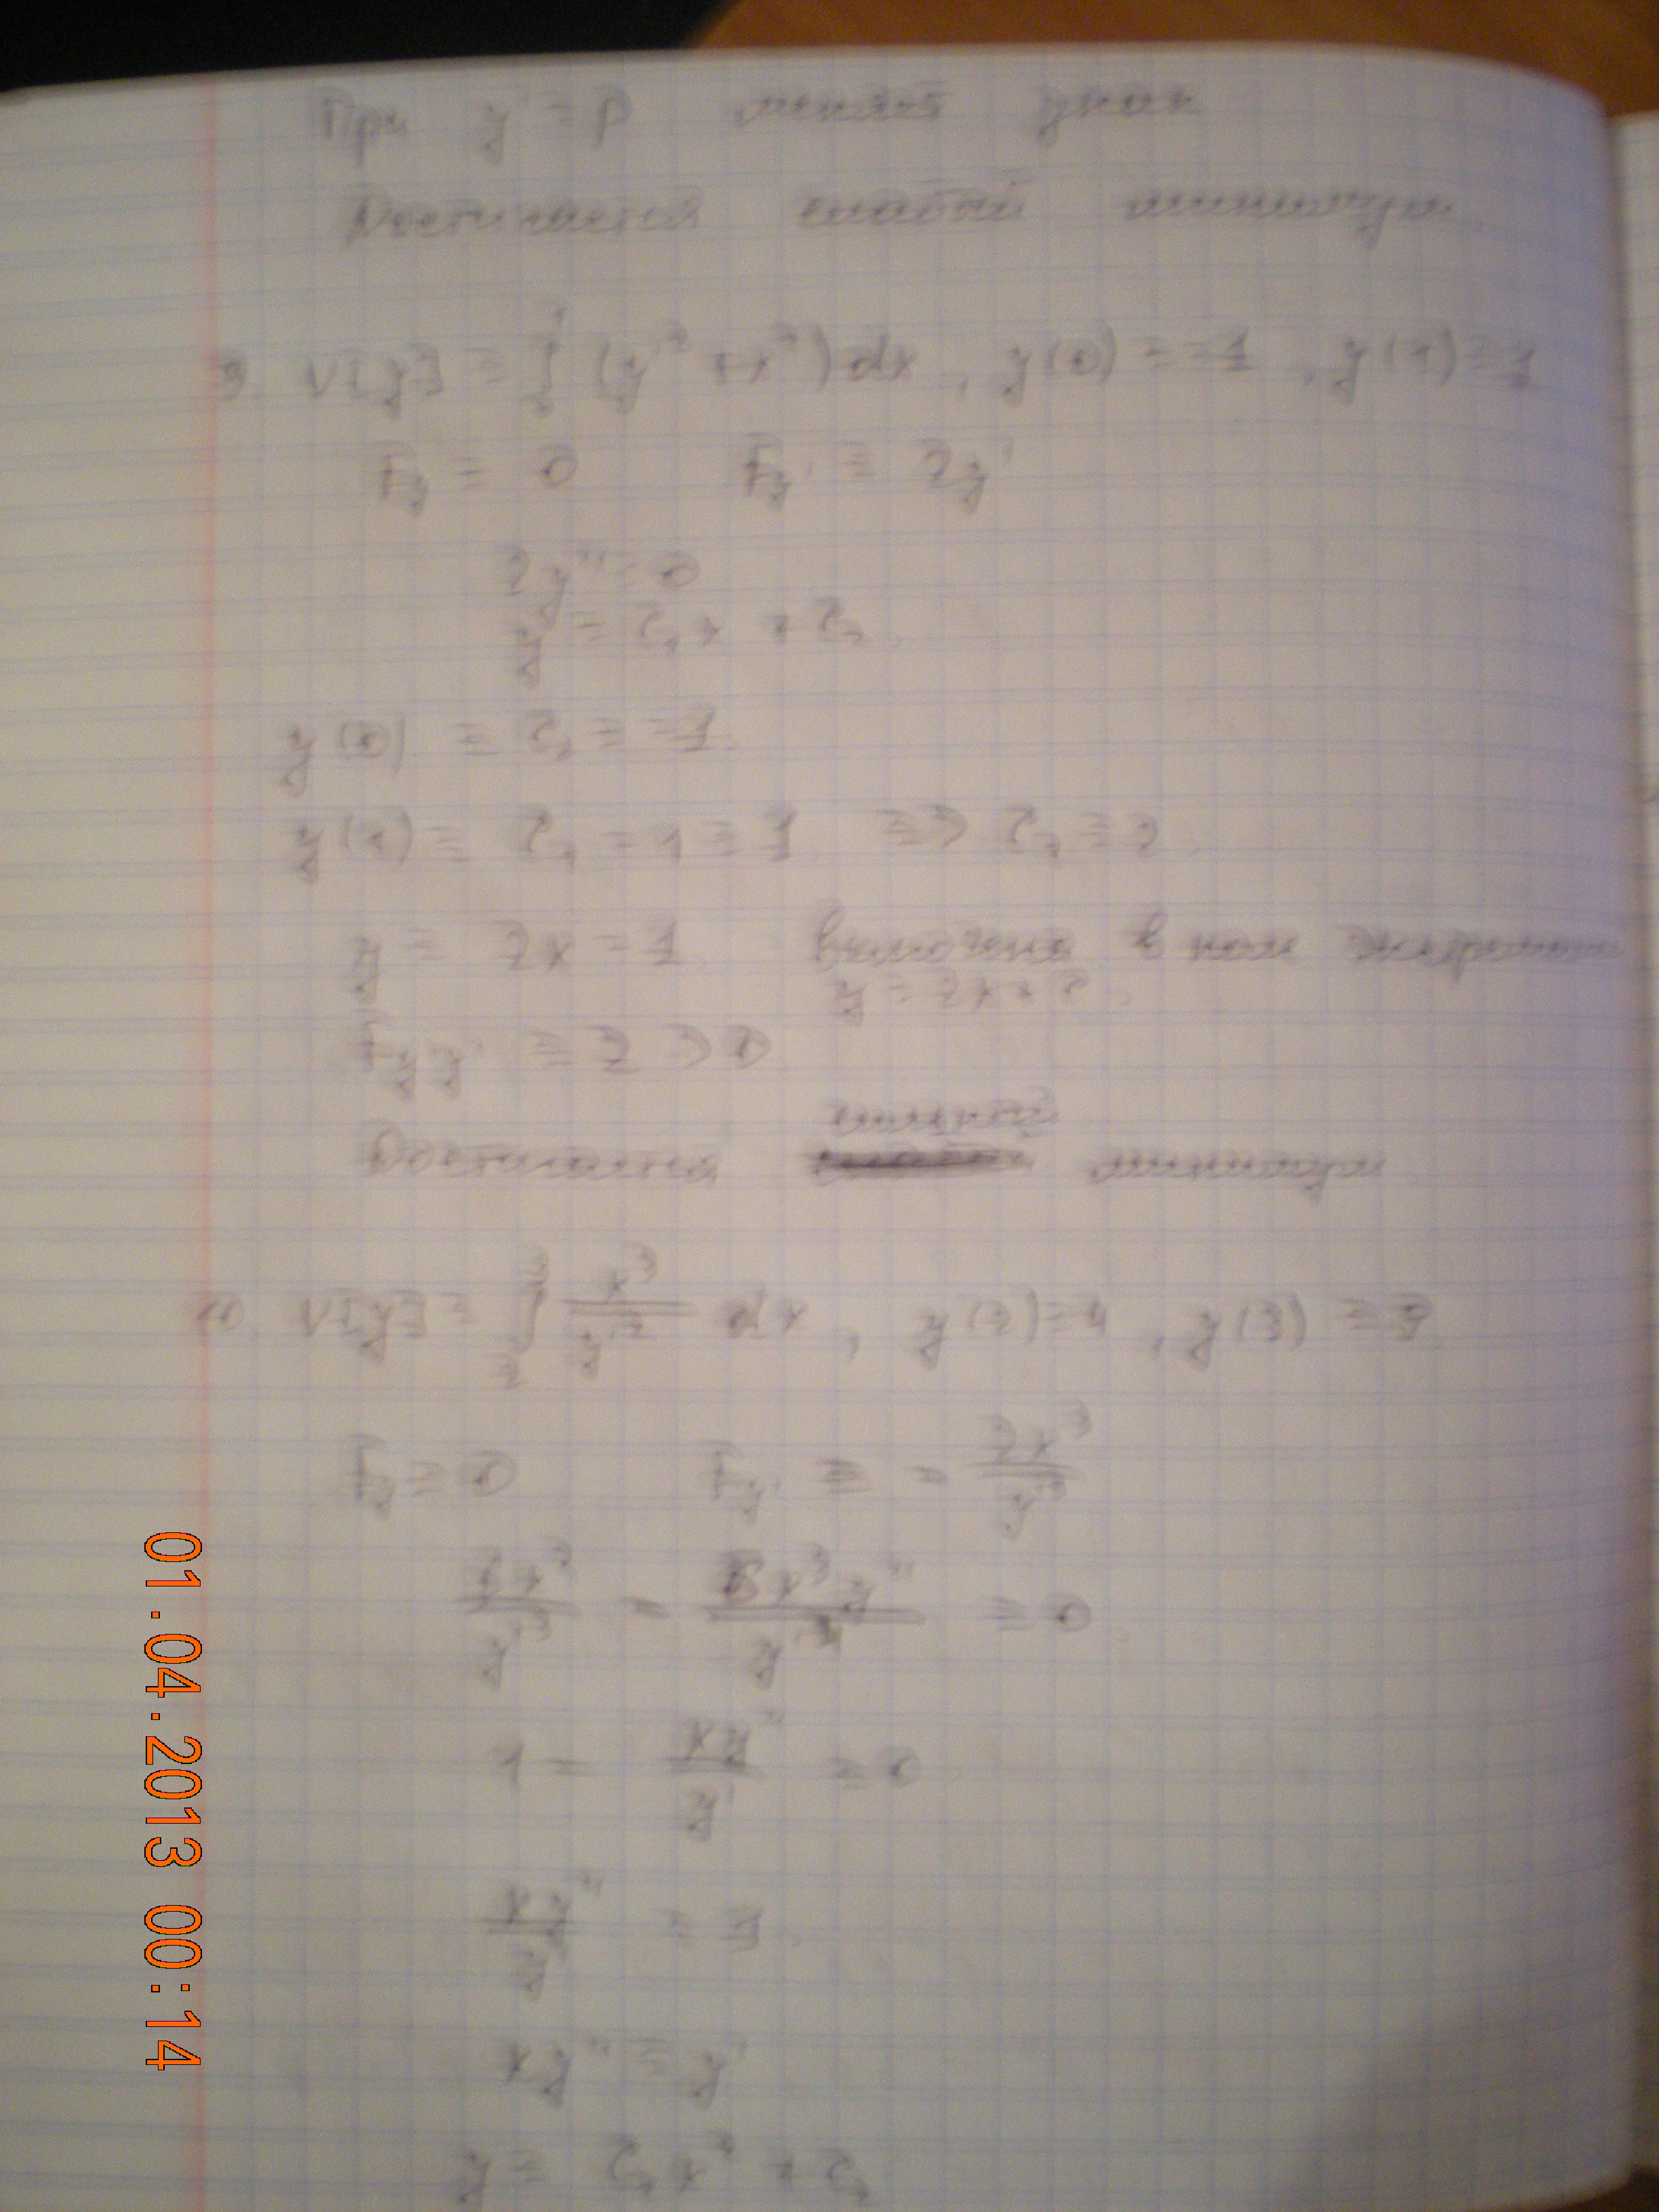 При y' = p меняет знак
Достигается слабый минимум
9. V[y] = ∫₀¹ (y'² + x²) dx, y(0) = -1, y(1) = 1
F_y = 0 F_y' = 2y'
2y'' = 0
y = C₁x + C₂
y(0) = C₂ = -1
y(1) = C₁ - 1 = 1 => C₁ = 2
y = 2x - 1 включена в поле экстремалей
y = 2x + C
F_y'y' = 2 > 0
сильный
Достигается минимум
10. V[y] = ∫₂³ x³/y'² dx, y(2) = 4, y(3) = 9
F_y = 0 F_y' = - 2x³/y'³
6x²/y'³ - 6x³y''/y'⁴ = 0
1 - xy''/y' = 0
xy''/y' = 1
xy'' = y'
y = C₁x² + C₂
01.04.2013 00:14